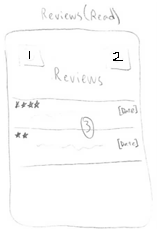 Reviews(Read)
1 2
Reviews
**** [Date]
3
** [Date]